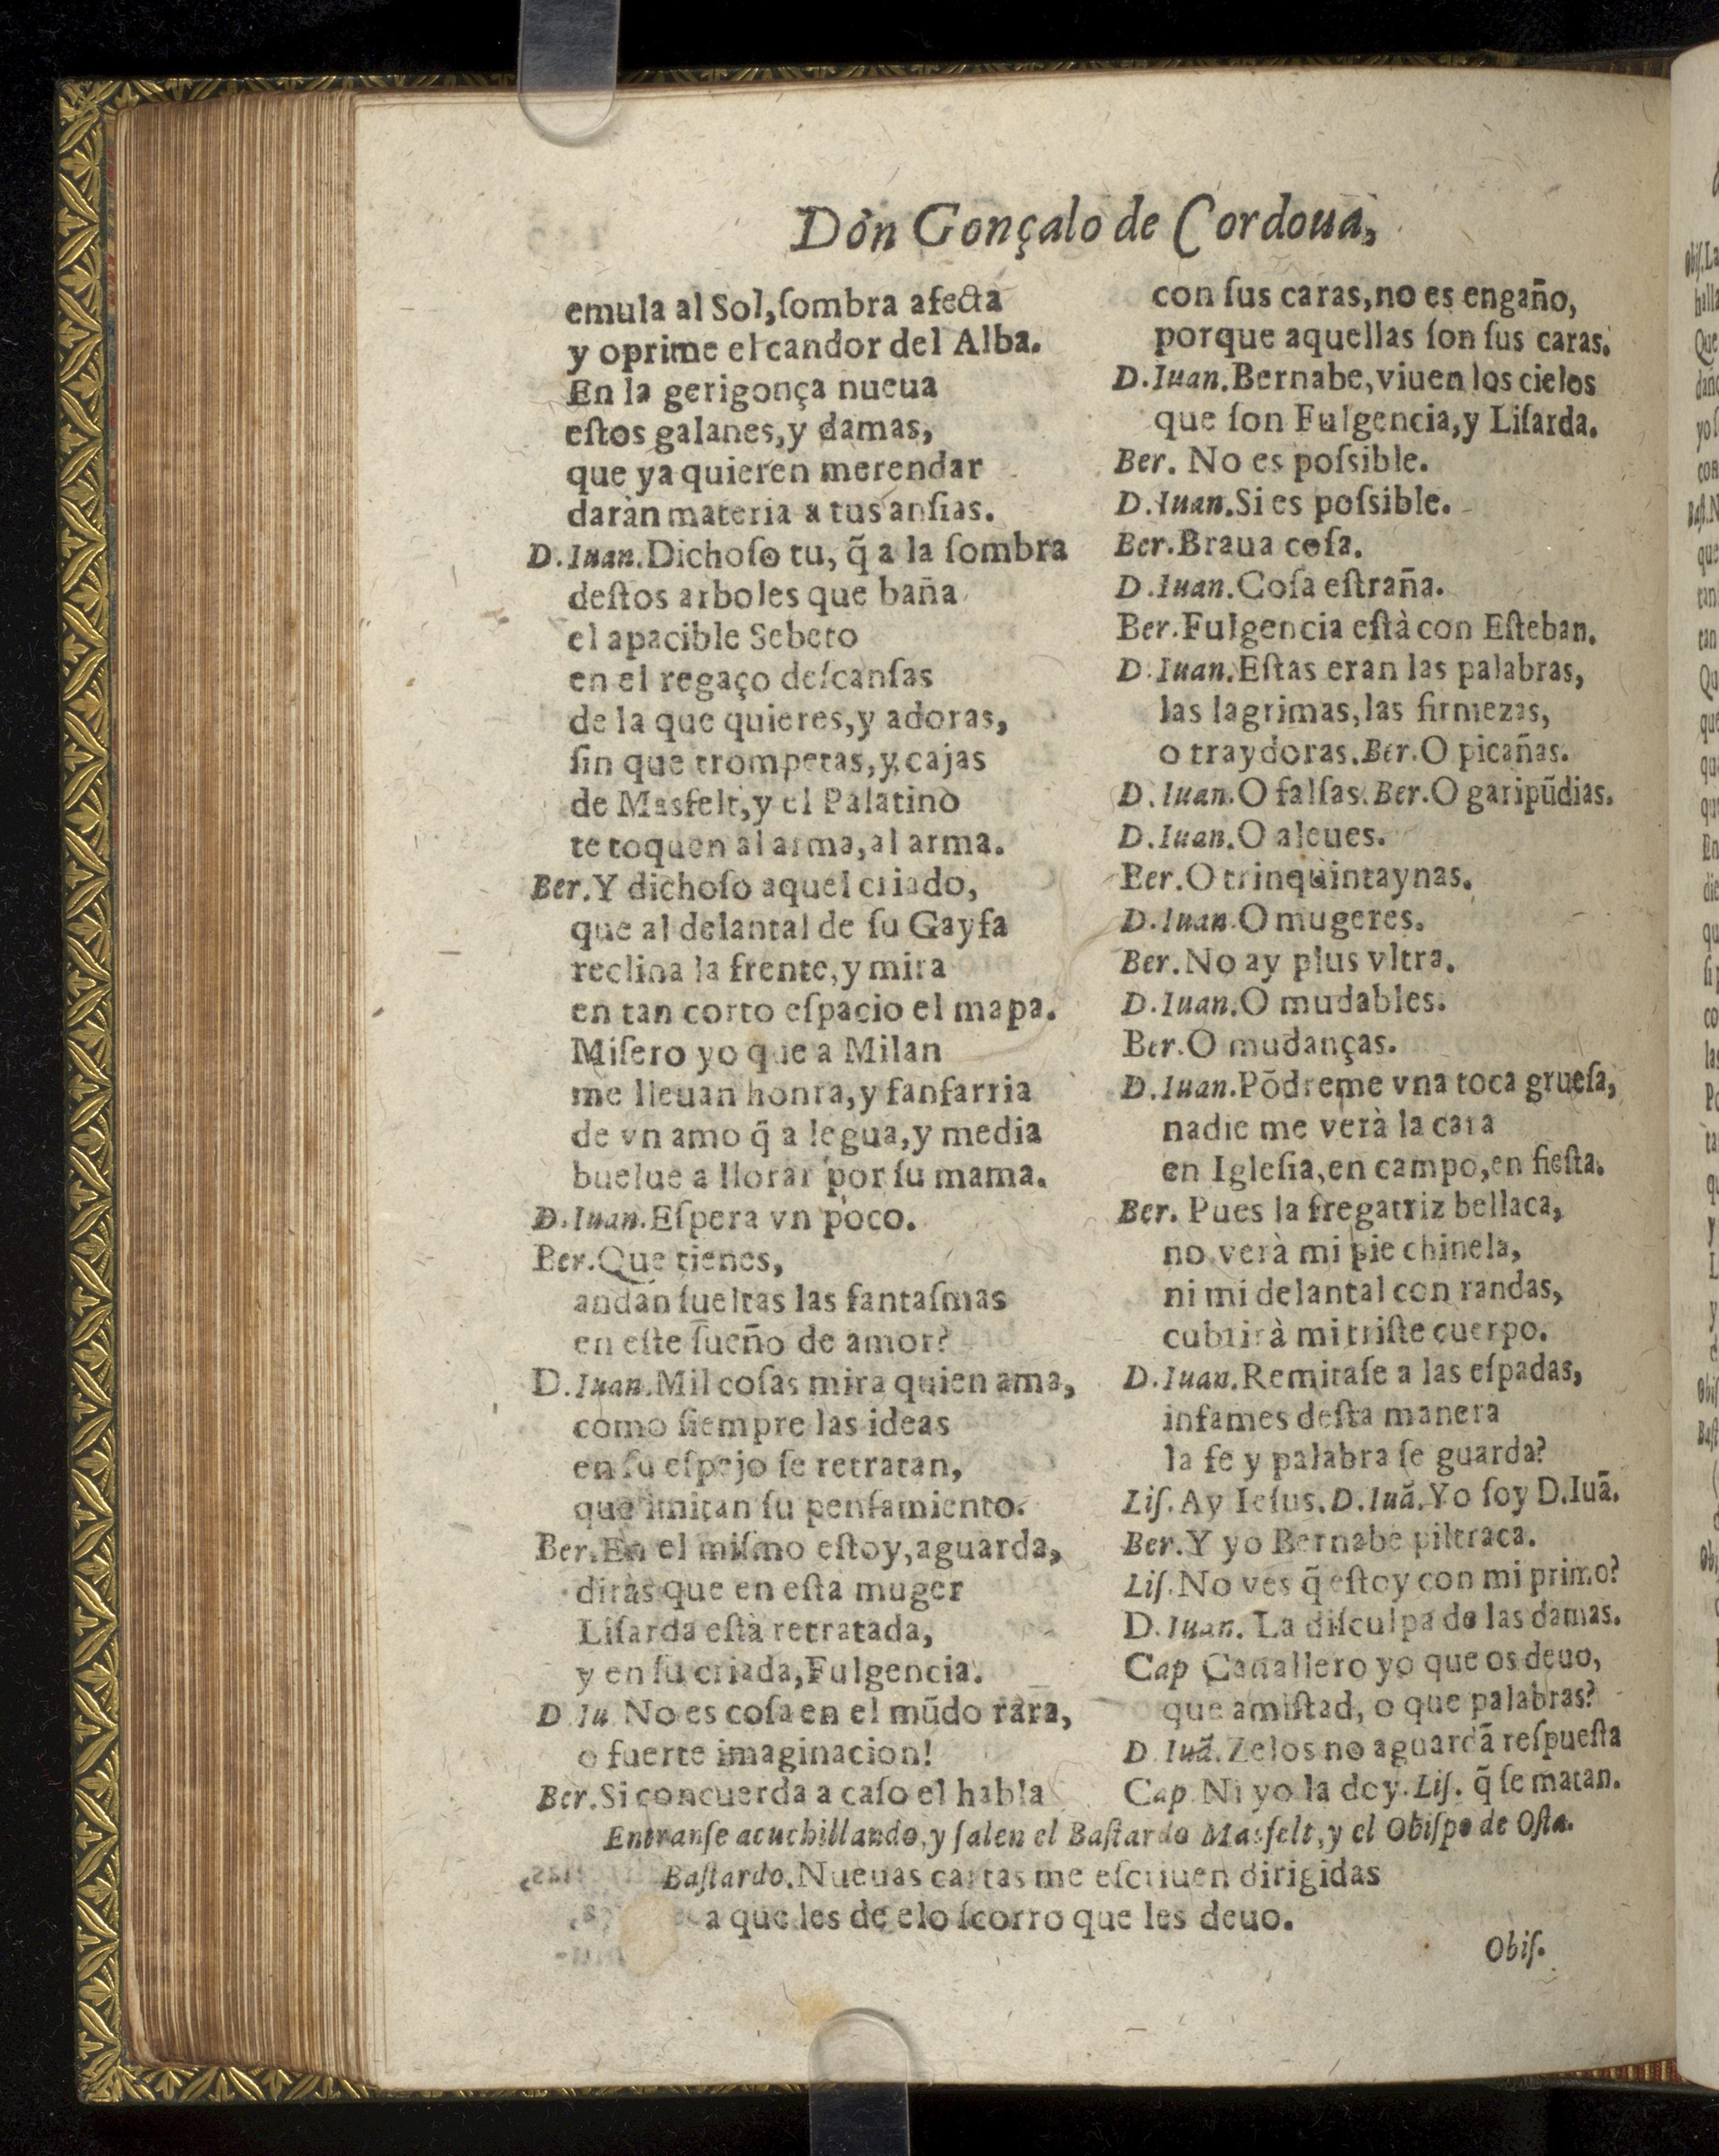 Don Gonçalo de Cordoua,
emula al Sol, ſombra afecta
y oprime el candor del Alba.
En la gerigonça nueua
eſtos galanes, y damas,
que ya quieren merendar
daràn materia a tus anſias.
D. Iuan. Dichoſo tu, q̃ a la ſombra
deſtos arboles que baña
el apacible Sebeto
en el regaço deſcanſas
de la que quieres, y adoras,
ſin que trompetas, y cajas
de Masfelt, y el Palatino
te toquen al arma, al arma.
Ber. Y dichoſo aquel criado,
que al delantal de ſu Gayfa
reclina la frente, y mira
en tan corto eſpacio el mapa.
Miſero yo que a Milan
me lleuan honra, y fanfarria
de vn amo q̃ a legua, y media
buelue a llorar por ſu mama.
D. Iuan. Eſpera vn poco.
Ber. Que tienes,
andan ſueltas las fantaſmas
en eſte ſueño de amor?
D. Iuan. Mil coſas mira quien ama,
como ſiempre las ideas
en ſu eſpejo ſe retratan,
que imitan ſu penſamiento.
Ber. En el miſmo eſtoy, aguarda,
diràs que en eſta muger
Liſarda eſtà retratada,
y en ſu criada, Fulgencia.
D Iu No es coſa en el mũdo rara,
o fuerte imaginacion!
Ber. Si concuerda a caſo el habla
con ſus caras, no es engaño,
porque aquellas ſon ſus caras.
D. Iuan. Bernabe, viuen los cielos
que ſon Fulgencia, y Liſarda.
Ber. No es poſsible.
D. Iuan. Si es poſsible.
Ber. Braua coſa.
D. Iuan. Coſa eſtraña.
Ber. Fulgencia eſtà con Eſteban.
D. Iuan. Eſtas eran las palabras,
las lagrimas, las firmezas,
o traydoras. Ber. O picañas.
D. Iuan. O falſas. Ber. O garipũdias.
D. Iuan. O aleues.
Ber. O trinquintaynas.
D. Iuan. O mugeres.
Ber. No ay plus vltra.
D. Iuan. O mudables.
Ber. O mudanças.
D. Iuan. Põdreme vna toca grueſa,
nadie me verà la cara
en Igleſia, en campo, en fieſta.
Ber. Pues la fregatriz bellaca,
no verà mi pie chinela,
ni mi delantal con randas,
cubrirà mi triſte cuerpo.
D. Iuan. Remitaſe a las eſpadas,
infames deſta manera
la fe y palabra ſe guarda?
Liſ. Ay Ieſus. D. Iuã. Yo ſoy D. Iuã.
Ber. Y yo Bernabe piltraca.
Liſ. No ves q̃ eſtoy con mi primo?
D. Iuan. La diſculpa de las damas.
Cap Cauallero yo que os deuo,
que amiſtad, o que palabras?
D Iuã. Zelos no aguardã reſpueſta
Cap. Ni yo la doy. Liſ. q̃ ſe matan.
Entranſe acuchillando, y ſalen el Baſtardo Masfelt, y el Obiſpo de Oſta.
Baſtardo. Nueuas cartas me eſcriuen dirigidas
a que les de elo ſcorro que les deuo.
Obiſ.